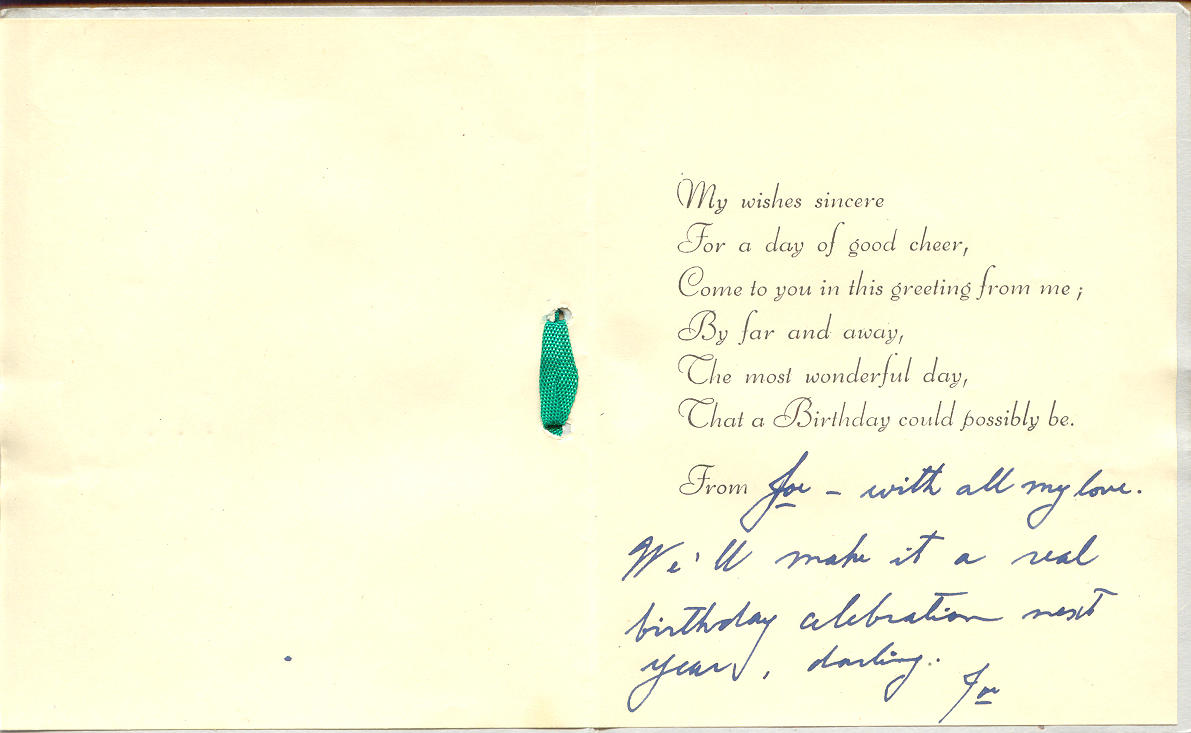 My wishes sincere
For a day of good cheer,
Come to you in this greeting from me;
By far and away,
The most wonderful day,
That a Birthday could possibly be.
From Joe – with all my love.
We'll make it a real
birthday celebration next
year, darling.
Joe